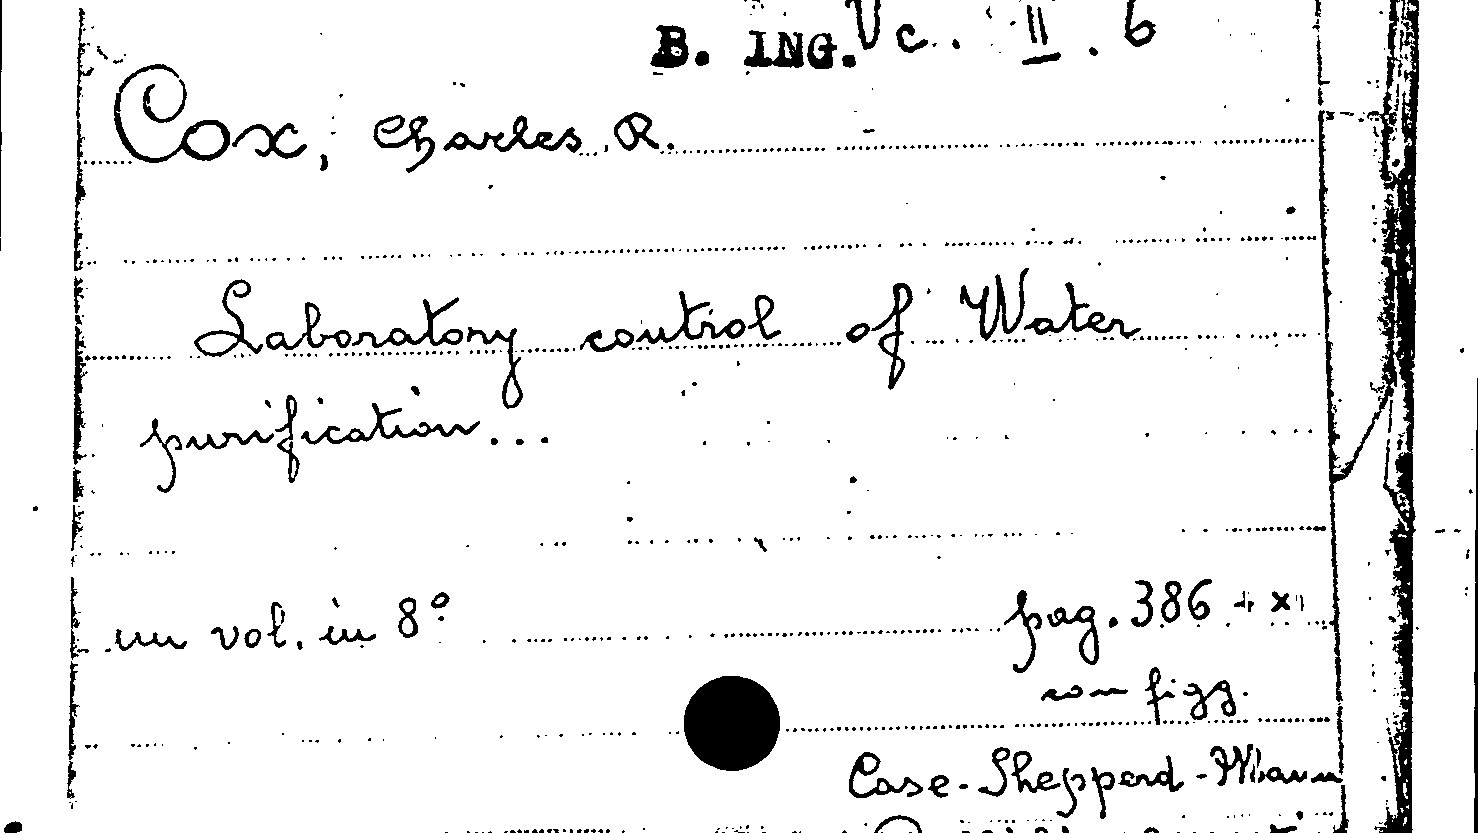 B. ING. Vc. II. 6
Cox, Charles R.
Laboratory control of Water
purification...
un vol. in 8°
pag. 386 + x
con figg.
Case-Shepperd-Mann